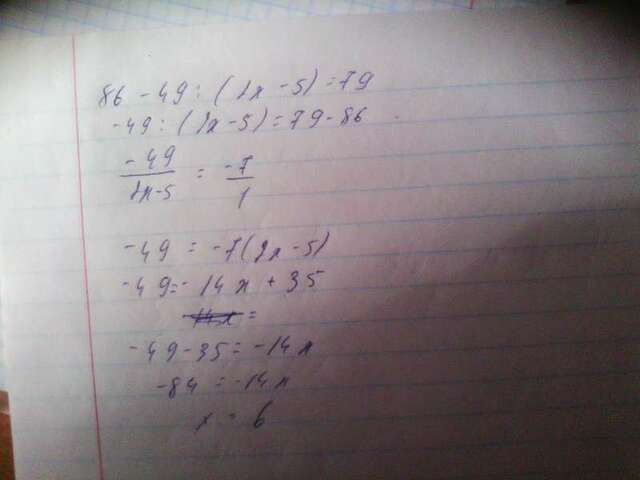 86 - 49 : (2x - 5) = 79
-49 : (2x - 5) = 79 - 86
-49/2x-5 = -7/1
-49 = -7(2x - 5)
-49 = -14x + 35
14x =
-49 - 35 = -14x
-84 = -14x
x = 6